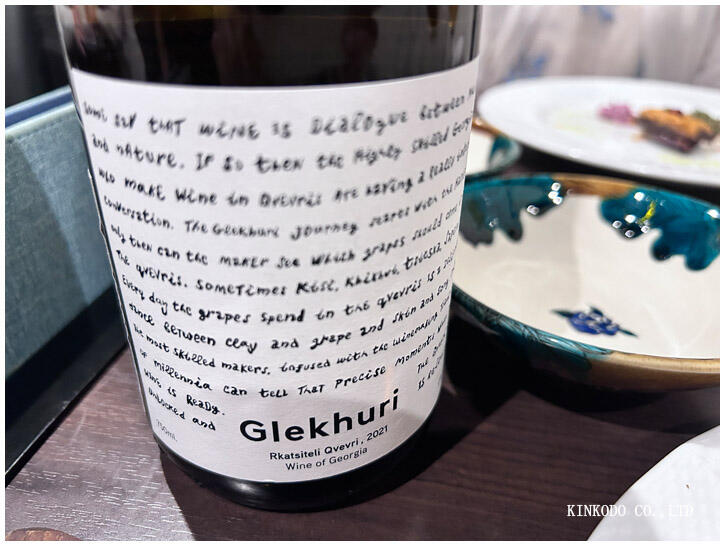 Some say that wine is Dialogue between
and nature. If so then the highly skilled
who make wine in Qvevris are having a really
conversation. The Glekhuri journey starts with the
only then can the maker see which grapes should
the qvevris. Sometimes Kisi, Khikhvi,
Every day the grapes spend in the qvevris is a
dance between clay and grape and skin and
the most skilled makers, infused with the winemaking
of millennia can tell that precise moment
wine is Ready. The
unlocked and is
750ml.
Glekhuri
Rkatsiteli Qvevri, 2021
Wine of Georgia
KINKODO CO.,LTD